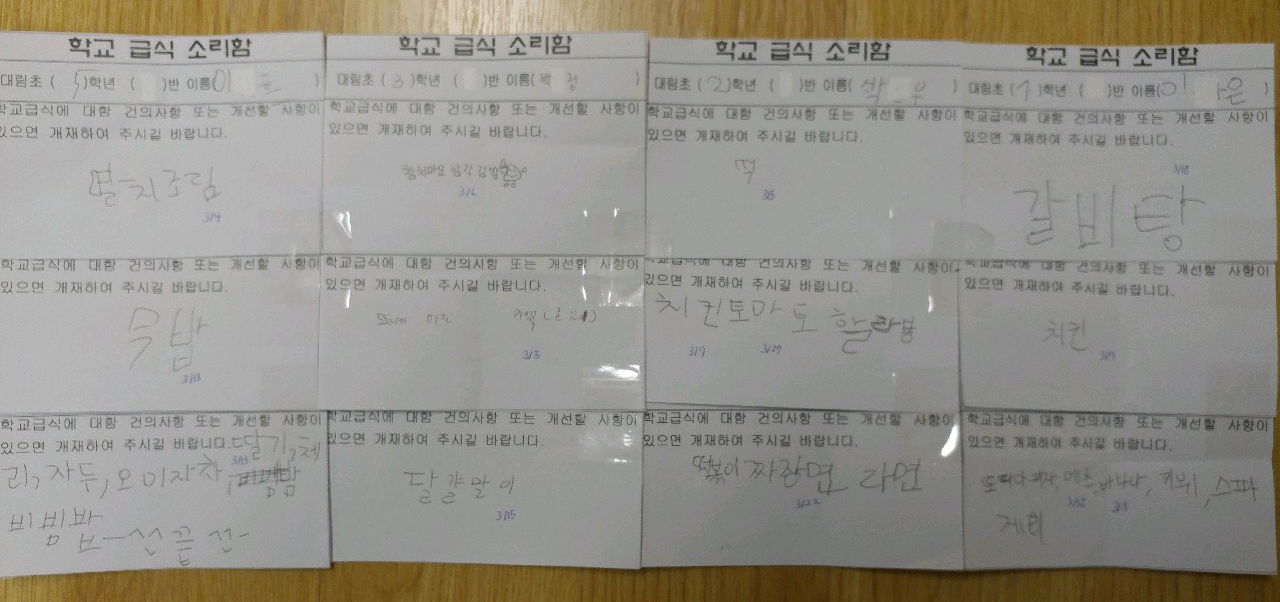 학교 급식 소리함
대림초 ( 5 )학년 ( )반 이름( 이 )
학교급식에 대함 건의사항 또는 개선할 사항이
있으면 개재하여 주시길 바랍니다.
멸치조림
3/4
학교급식에 대함 건의사항 또는 개선할 사항이
있으면 개재하여 주시길 바랍니다.
쑥밥
3/13
학교급식에 대함 건의사항 또는 개선할 사항이
있으면 개재하여 주시길 바랍니다. 딸기, 체
리, 자두, 오미자차,
3/13
비빔밥
학교 급식 소리함
대림초 ( 3 )학년 ( )반 이름( 백 정 )
학교급식에 대함 건의사항 또는 개선할 사항이
있으면 개재하여 주시길 바랍니다.
참치마요 삼각김밥
3/6
학교급식에 대함 건의사항 또는 개선할 사항이
있으면 개재하여 주시길 바랍니다.
3/5
학교급식에 대함 건의사항 또는 개선할 사항이
있으면 개재하여 주시길 바랍니다.
달걀말이
3/15
학교 급식 소리함
대림초 ( 2 )학년 ( )반 이름( 박 우 )
학교급식에 대함 건의사항 또는 개선할 사항이
있으면 개재하여 주시길 바랍니다.
떡
3/5
학교급식에 대함 건의사항 또는 개선할 사항이
있으면 개재하여 주시길 바랍니다.
치킨토마토 한라봉
3/7 3/27
학교급식에 대함 건의사항 또는 개선할 사항이
있으면 개재하여 주시길 바랍니다.
떡볶이 짜장면 라면
3/22
학교 급식 소리함
대림초 ( 1 )학년 ( )반 이름( 이 은 )
학교급식에 대함 건의사항 또는 개선할 사항이
있으면 개재하여 주시길 바랍니다.
3/18
갈비탕
학교급식에 대함 건의사항 또는 개선할 사항이
있으면 개재하여 주시길 바랍니다.
치킨
3/7
학교급식에 대함 건의사항 또는 개선할 사항이
있으면 개재하여 주시길 바랍니다.
또띠아피자, 메론, 바나나, 키위, 스파
게티